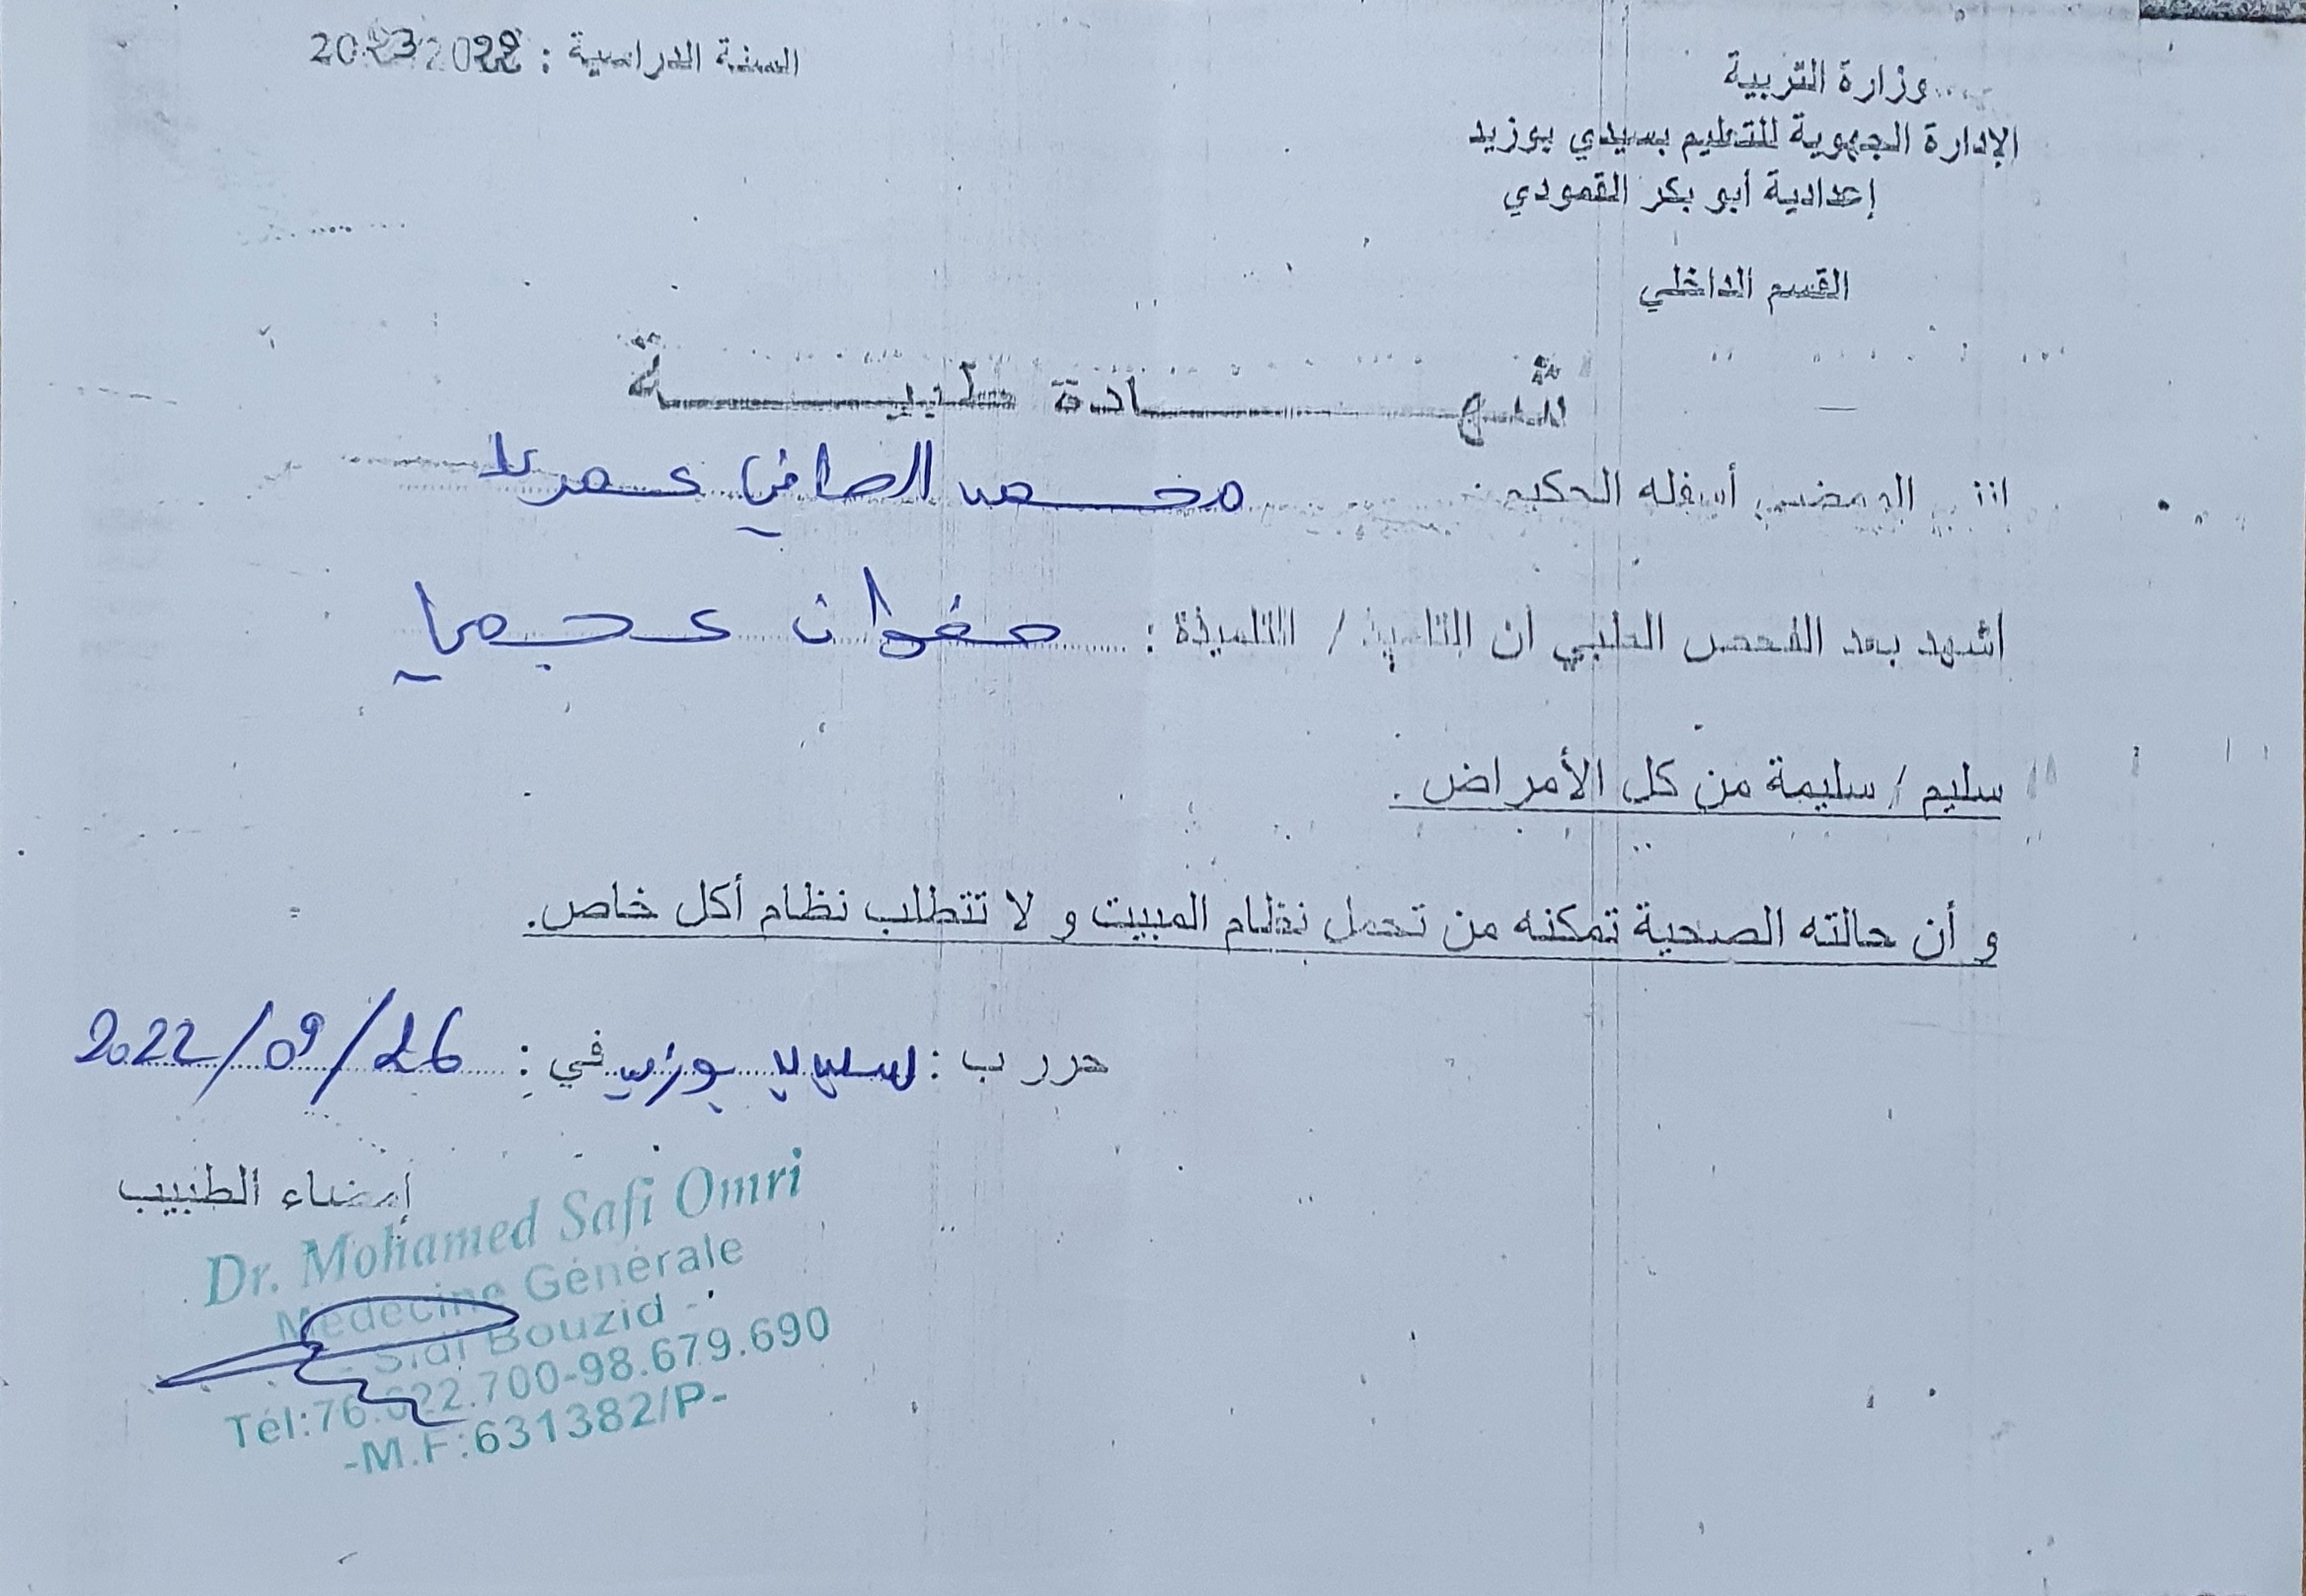 وزارة التربية
السنة الدراسية : 2022 2023
الإدارة الجهوية للتعليم بسيدي بوزيد
إعدادية أبو بكر القمودي
القسم الداخلي
شهادة طبية
اني الممضي أسفله الحكيم : محمد الصافي عمري
اشهد بعد الفحص الطبي ان التلميذ / التلميذة : صفوان عجمي
سليم / سليمة من كل الأمراض .
و أن حالته الصحية تمكنه من تحمل نظام المبيت و لا تتطلب نظام أكل خاص.
حرر ب : سيدي بوزيد في : 26/09/2022
إمضاء الطبيب
Dr. Mohamed Safi Omri
Médecine Générale
- Sidi Bouzid -
Tél:76.622.700-98.679.690
-M.F:631382/P-